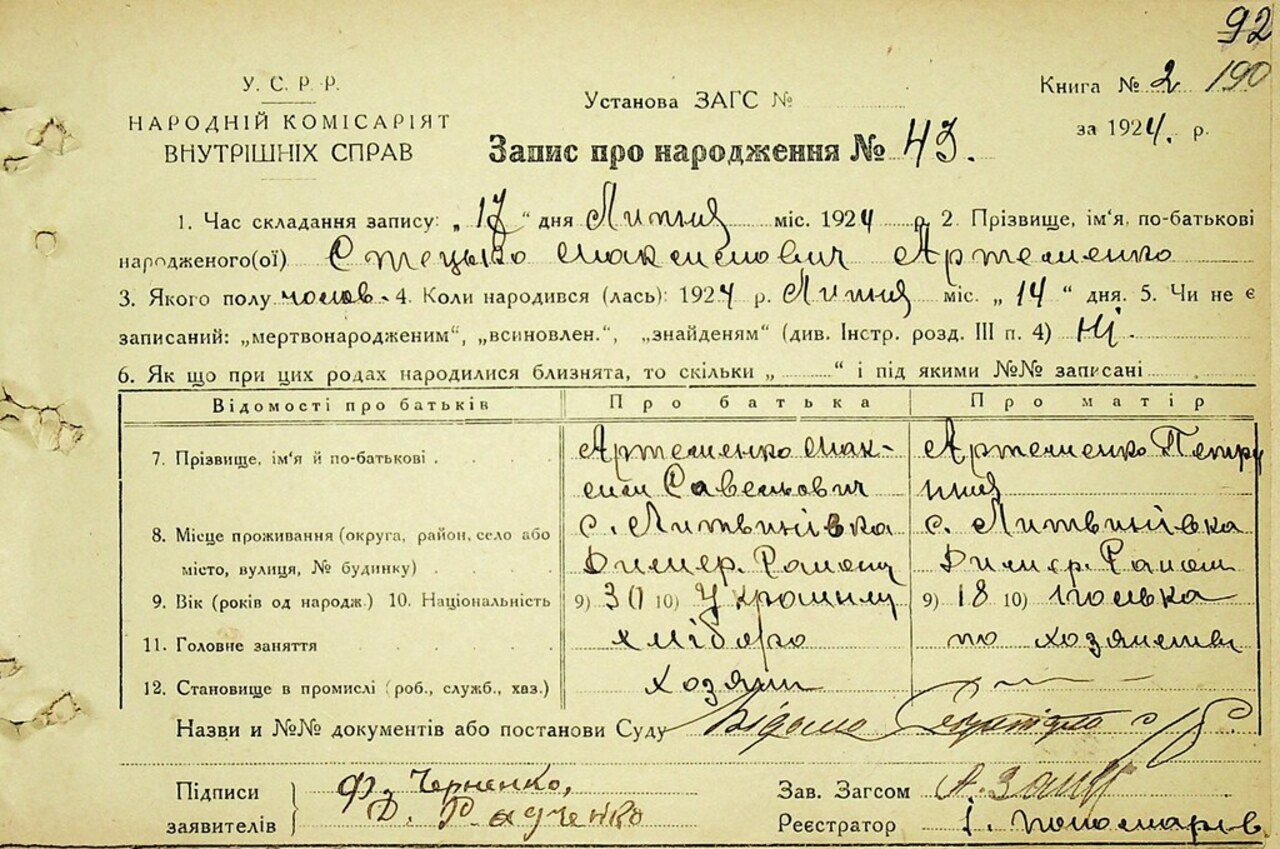 92
У. С. Р. Р.
НАРОДНІЙ КОМІСАРІЯТ
ВНУТРІШНІХ СПРАВ
Установа ЗАГС №
Книга № 2 190
за 1924. р.
Запис про народження № 43.
1. Час складання запису: „17“ дня Липня міс. 1924 р. 2. Прізвище, ім'я, по-батькові
народженого(ої) Стецько Максимович Артеменко
3. Якого полу чолов. 4. Коли народився (лась): 1924 р. Липня міс. „14“ дня. 5. Чи не є
записаний: „мертвонародженим“, „всиновлен.“, „знайденям“ (див. Інстр. розд. III п. 4) Ні.
6. Як що при цих родах народилися близнята, то скільки „ “ і під якими №№ записані
Відомості про батьків Про батька Про матір
7. Прізвище, ім'я й по-батькові . Артеменко Мак- Артеменко Петру
сим Савельович
8. Місце проживання (округа, район, село або с. Литвинівка с. Литвинівка
місто, вулиця, № будинку) . . . Димер. Району Димер. Району
9. Вік (років од народж.) 10. Національність 9) 30 10) 9) 18 10)
11. Головне заняття хлібороб по хозяйству
12. Становище в промислі (роб., служб., хаз.) хозяин
Назви и №№ документів або постанови Суду Відома
Підписи Ф. Черненко, Зав. Загсом А.
заявителів Д. Радченко Реєстратор І. Пономарів